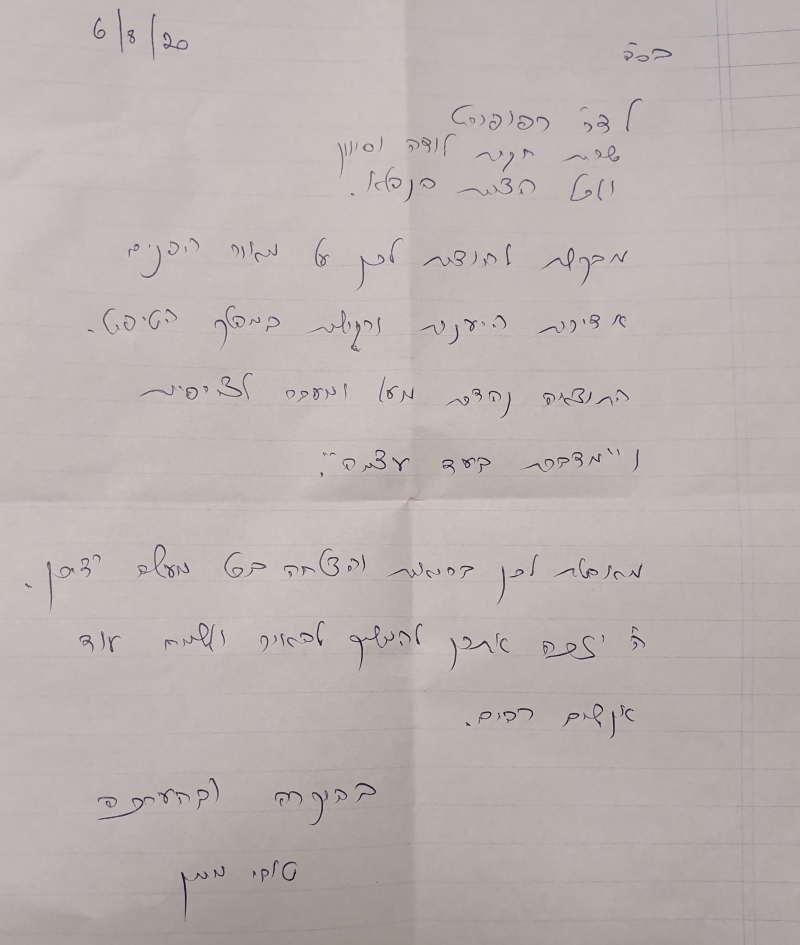 6/8/20
בס"ד
לדר' רפופורט
שרית חנית לודה וסיוון
וכל הצוות הנפלא.
מבקשת להודות לכן על מאור הפנים
אדיבות היענות ורגישות במהלך הטיפול.
התוצאות נהדרות מעל ומעבר לציפיות
ו"מדברות בעד עצמם".
מאחלת לכן בריאות והצלחה בכל מעשה ידיכן.
ה' יזכה אתכן להמשיך להאיר ולשמח עוד
אנשים רבים.
בברכה ובהערכה
טלי ממן